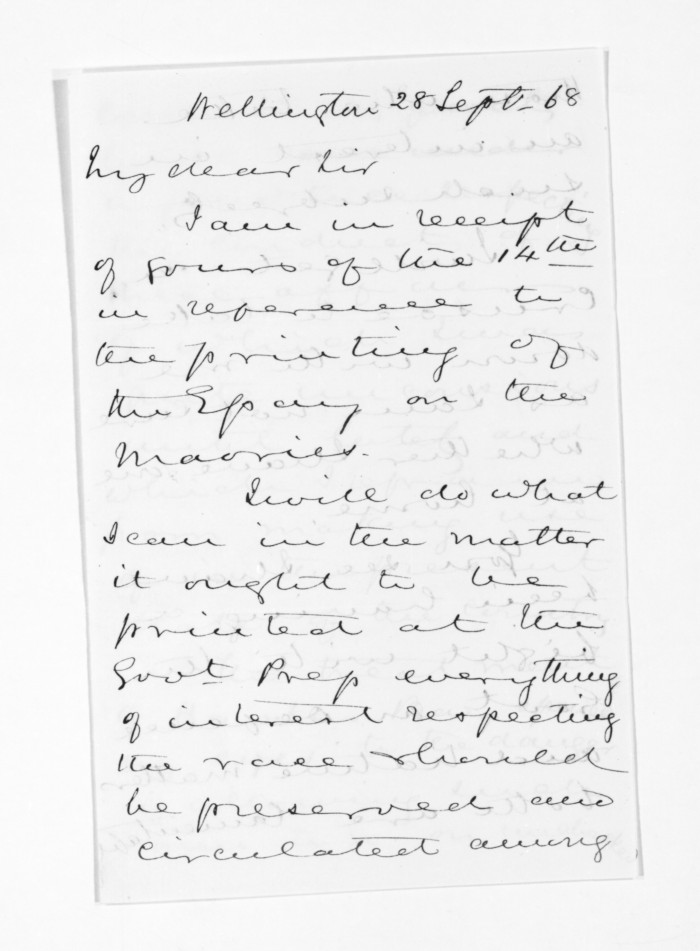 Wellington 28 Sept - 68
My dear Sir
I am in receipt
of yours of the 14th
in reference to
the printing of
the Essay on the
Maories.
I will do what
I can in the matter
it ought to be
printed at the
Govt Press everything
of interest respecting
the race should
be preserved and
circulated among